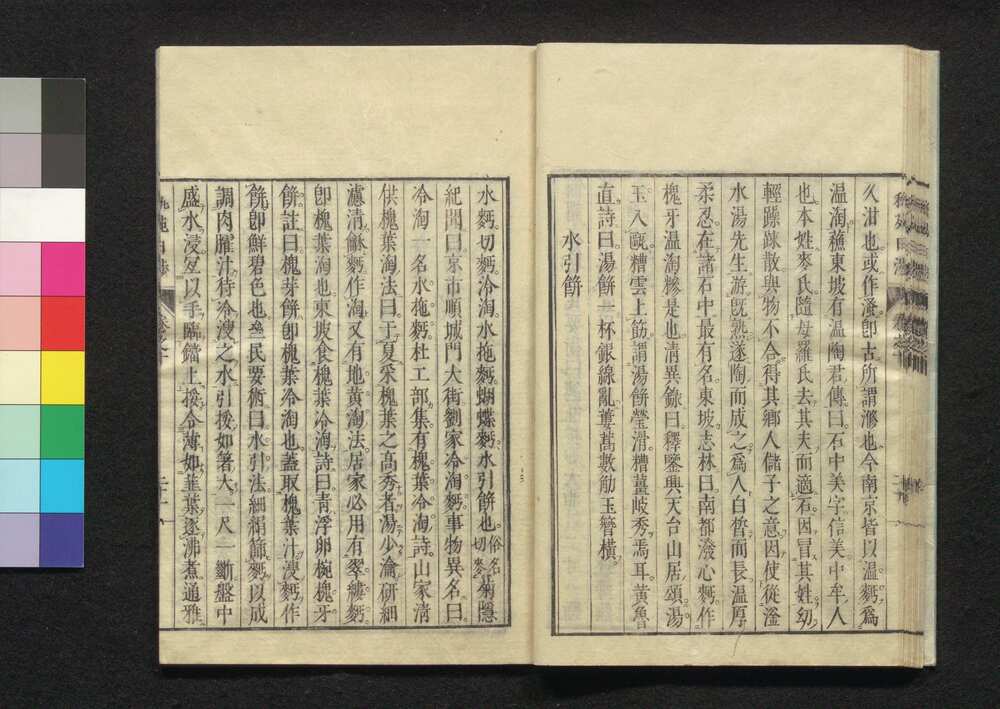 久泔也或作滫即古所謂滫也今南京皆以温麪爲
温淘蘓東坡有温陶君傳曰石中美字信美中牟人
也本姓麥氏隨母羅氏去其夫而適石因冒其姓幼
輕躁踈散與物不合得其鄕人儲子之意因使從滏
水湯先生游既熟遂陶而成之爲人白晳而長温厚
柔忍在諸石中最有名東坡志林曰南都潑心麪作
槐牙温淘糝是也淸異錄曰釋鑒興天台山居頌湯
玉入甌糟雲上筯謂湯餅瑩滑糟薑岐秀焉耳黃魯
直詩曰湯餅一杯銀線亂蔞蒿數筯玉簪橫
水引餅
水麪切麪冷淘水拖麪蝴蝶麪水引餅也俗名切麥菊隱
紀聞曰京市順城門大街劉家冷淘麪事物異名曰
冷淘一名水拖麪杜工部集有槐葉冷淘詩山家淸
供槐葉淘法曰于夏采槐葉之高秀者湯少瀹研細
濾淸龢麪作淘又有地黃淘法居家必用有翠縷麪
卽槐葉淘也東坡食槐葉冷淘詩曰靑浮卵椀槐牙
餅註曰槐芽餅卽槐葉冷淘也蓋取槐葉汁溲麪作
餅卽鮮碧色也齊民要術曰水引法細絹篩麪以成
調肉臛汁待冷溲之水引挼如箸大一尺一斷盤中
盛水浸宐以手臨鐺上挼令薄如韮葉逐沸煮通雅